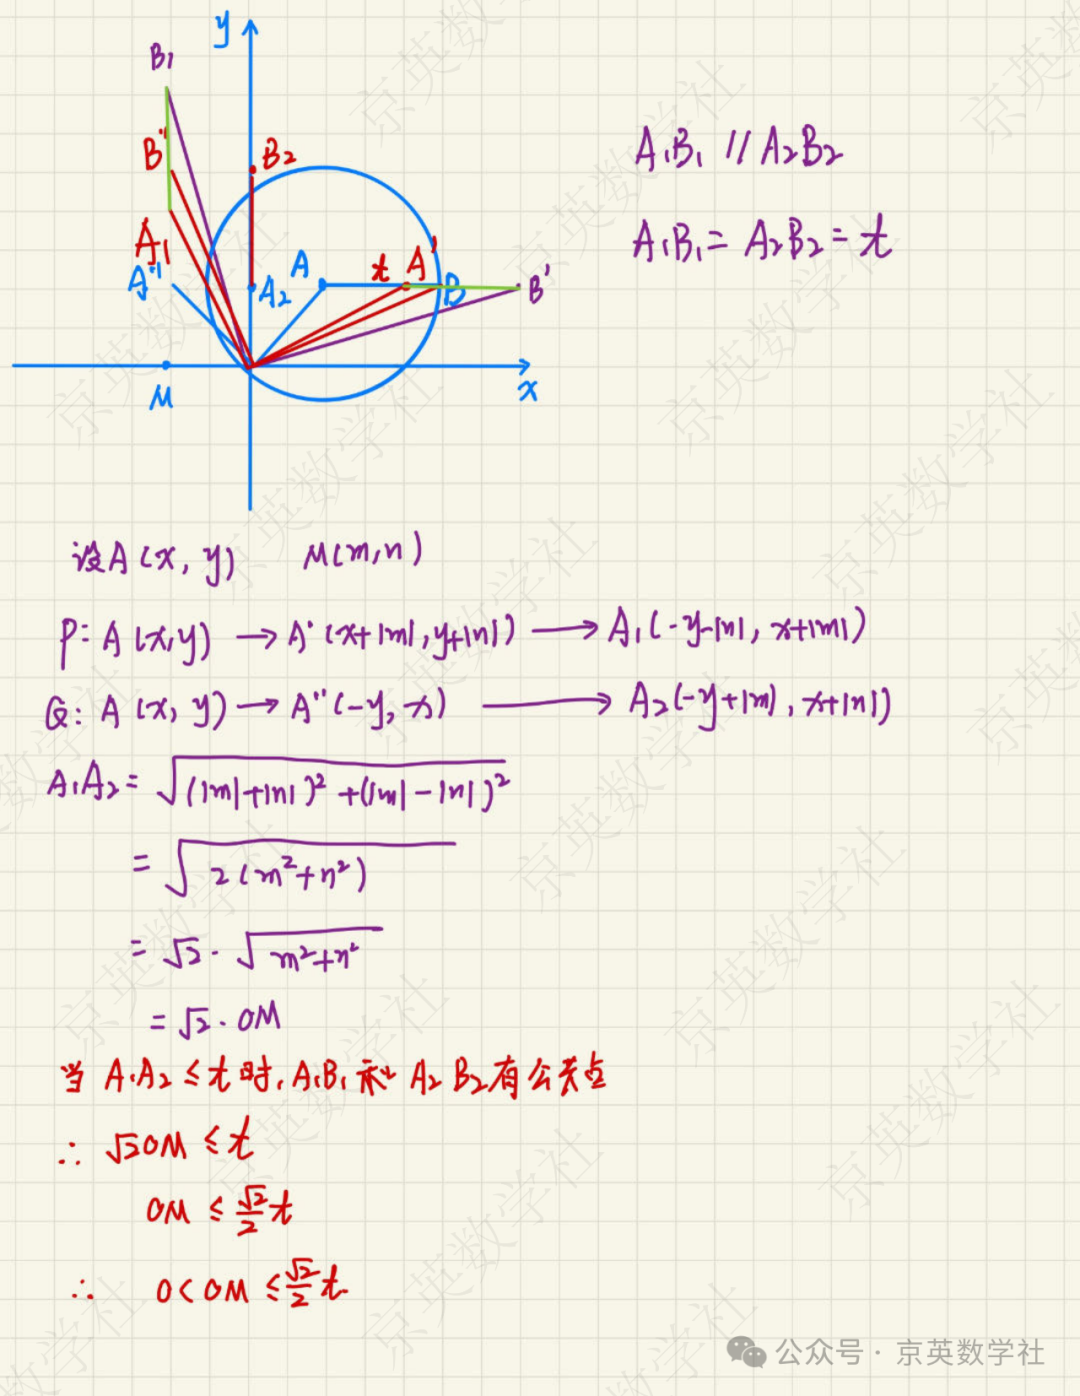 y
B₁
B''
B₂
A₁
A''
A₂
A
t
A'
B
B'
M
x
A₁B₁ // A₂B₂
A₁B₁ = A₂B₂ = t
设A(x, y) M(m, n)
P: A(x, y) → A'(x+|m|, y+|n|) → A₁(-y-|n|, x+|m|)
Q: A(x, y) → A''(-y, x) → A₂(-y+|m|, x+|n|)
A₁A₂ = √((|m|+|n|)²+(|m|-|n|)²)
= √(2(m²+n²))
= √2 · √(m²+n²)
= √2 · OM
当 A₁A₂ ≤ t 时, A₁B₁ 和 A₂B₂有公共点
∴ √2OM ≤ t
OM ≤ √2/2 t
∴ 0 < OM ≤ √2/2 t
公众号 · 京英数学社
京英数学社